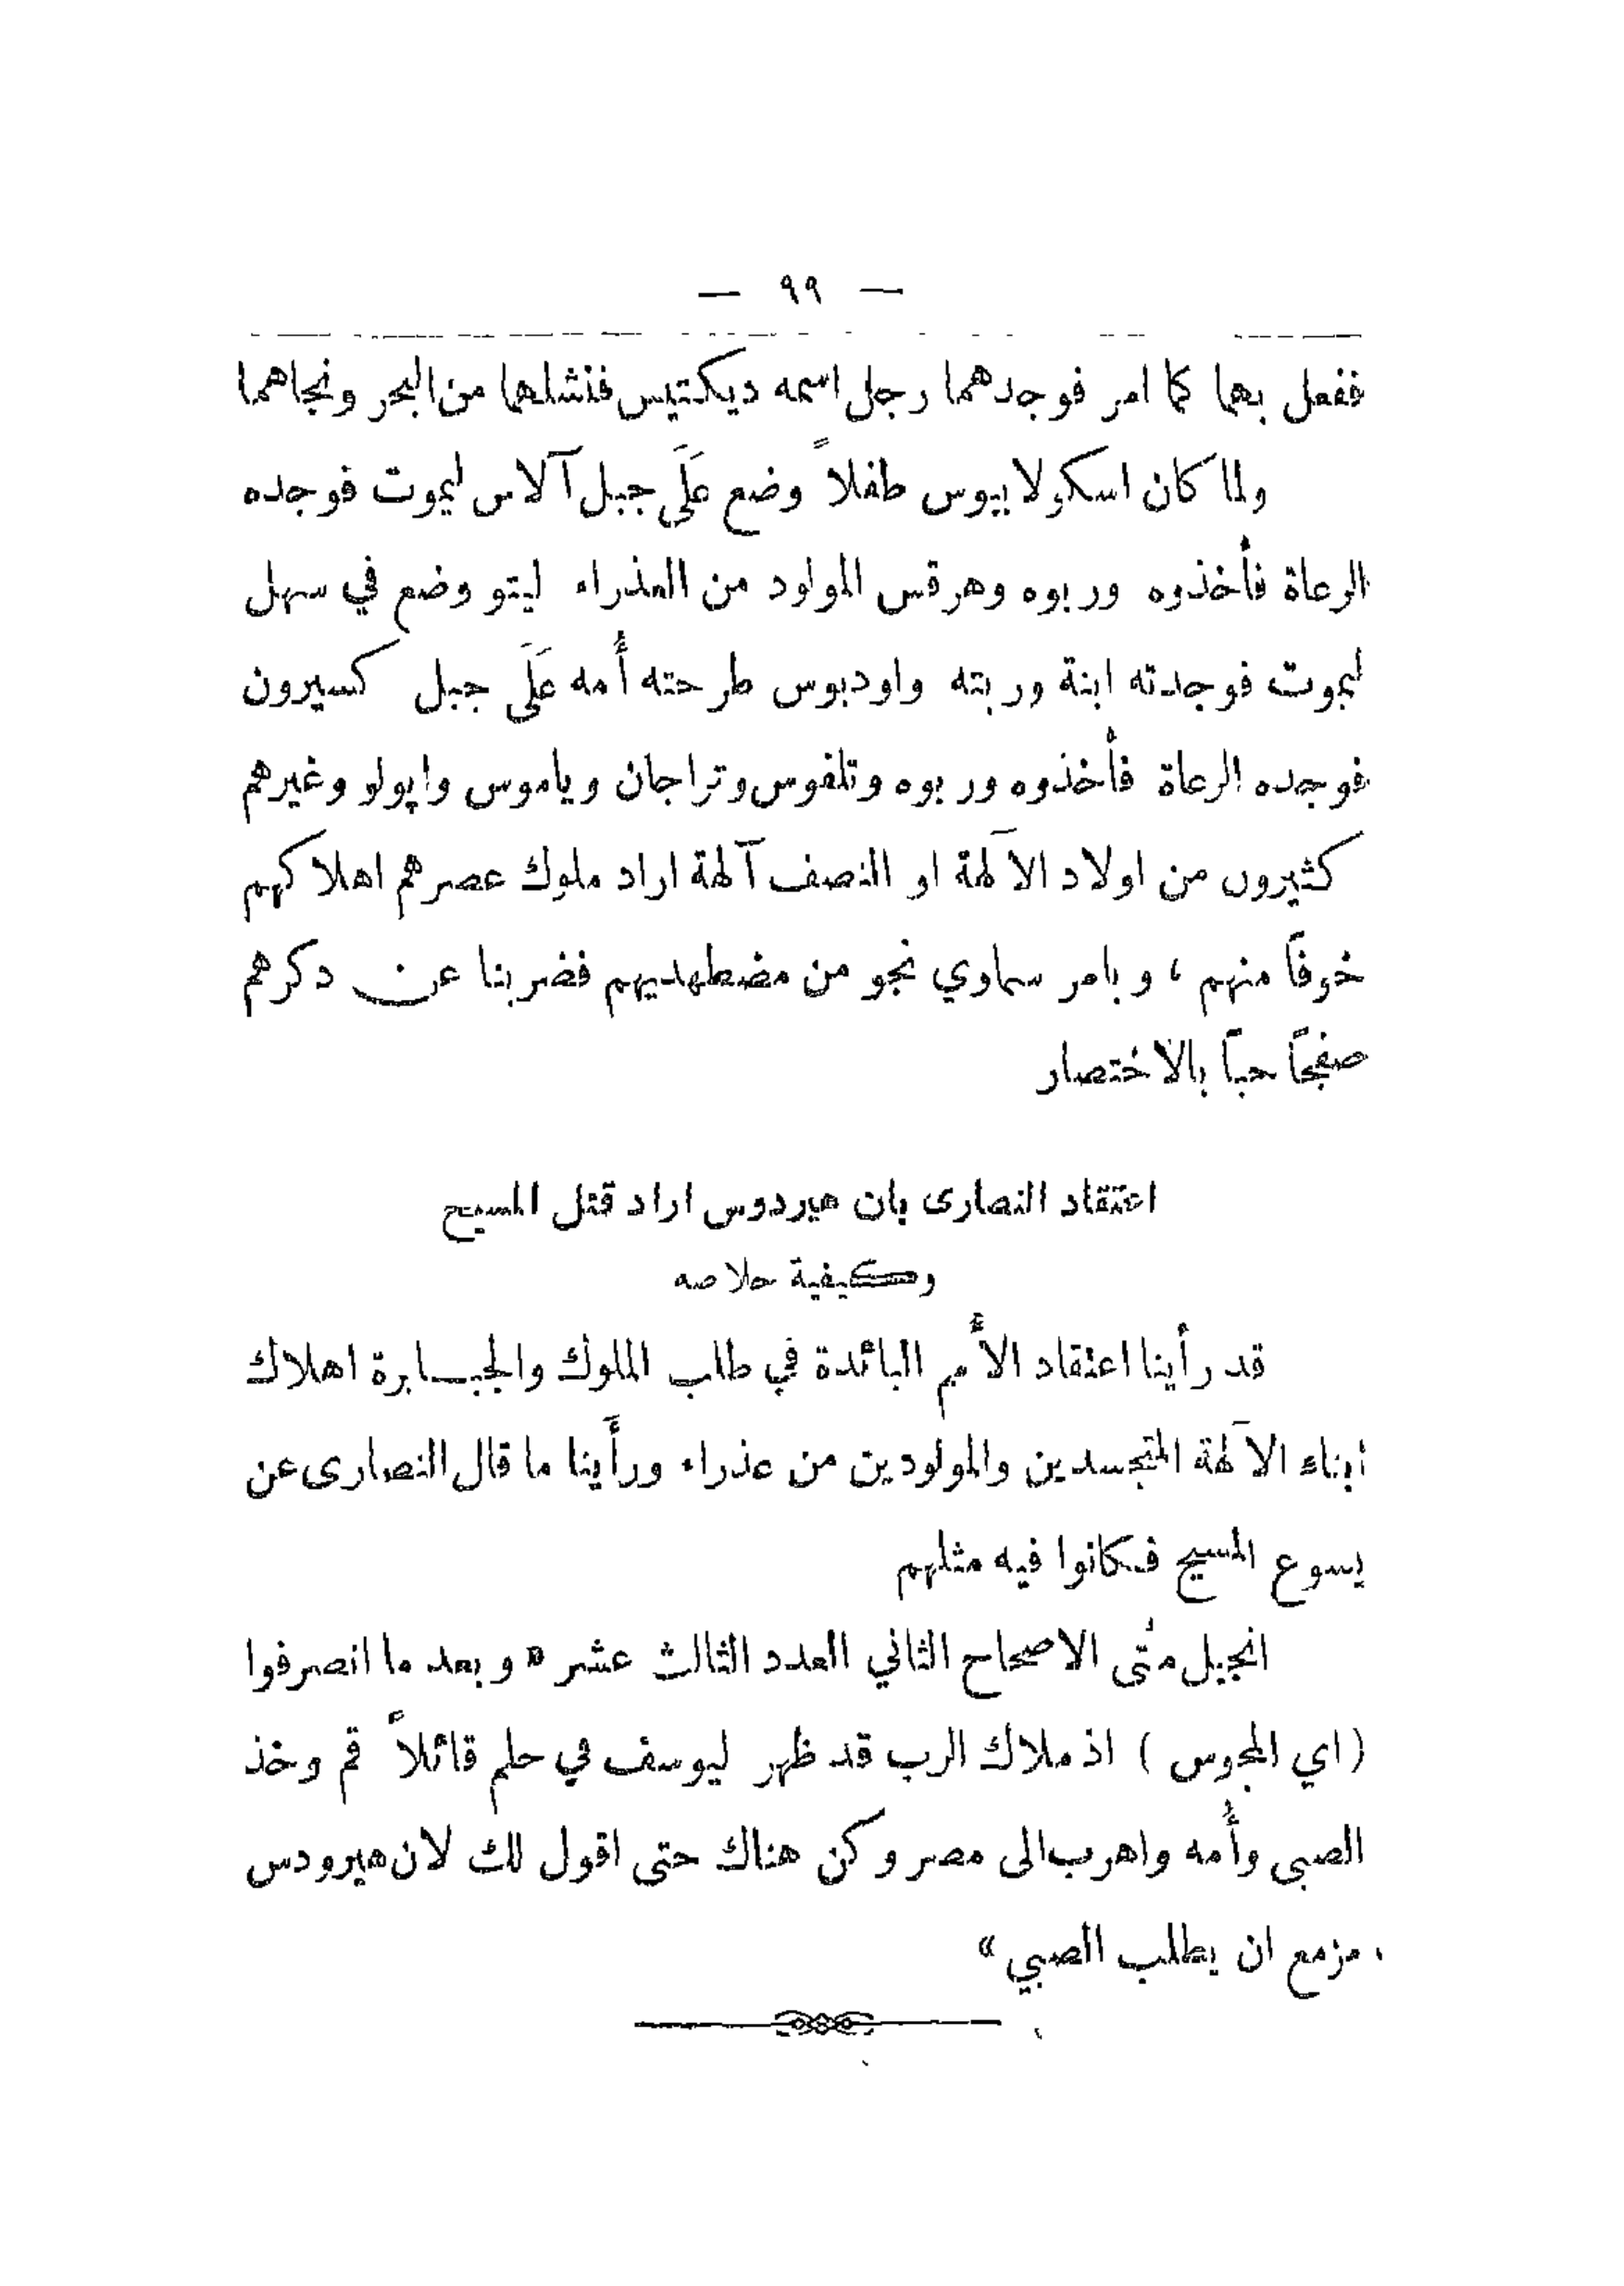 — ٩٩ —
ففعل بهما كما امر فوجدهما رجل اسمه ديكتيس فنشلهما من البحر ونجاهما
ولما كان اسكولابيوس طفلاً وضع عَلَى جبل آلاس ليموت فوجده
الرعاة فأخذوه وربوه وهرقس المولود من العذراء ليتو وضع في سهل
ليموت فوجدته ابنة وربته واوديوس طرحته أُمه عَلَى جبل كسيرون
فوجده الرعاة فأخذوه وربوه وتلفوس وتراجان وياموس واپولو وغيرهم
كثيرون من اولاد الآلهة او النصف آلهة اراد ملوك عصرهم اهلاكهم
خوفاً منهم ، وبامر سماوي نجو من مضطهديهم فضربنا عن ذكرهم
صفحاً حباً بالاختصار
اعتقاد النصارى بان هيردوس اراد قتل المسيح
وكيفية خلاصه
قد رأينا اعتقاد الأُمم البائدة في طلب الملوك والجبابرة اهلاك
ابناء الآلهة المتجسدين والمولودين من عذراء ورأَينا ما قال النصارى عن
يسوع المسيح فكانوا فيه مثلهم
انجيل متى الاصحاح الثاني العدد الثالث عشر « وبعد ما انصرفوا
( اي المجوس ) اذ ملاك الرب قد ظهر ليوسف في حلم قائلاً قم وخذ
الصبى وأُمه واهرب الى مصر وكن هناك حتى اقول لك لان هيرودس
مزمع ان يطلب الصبي »